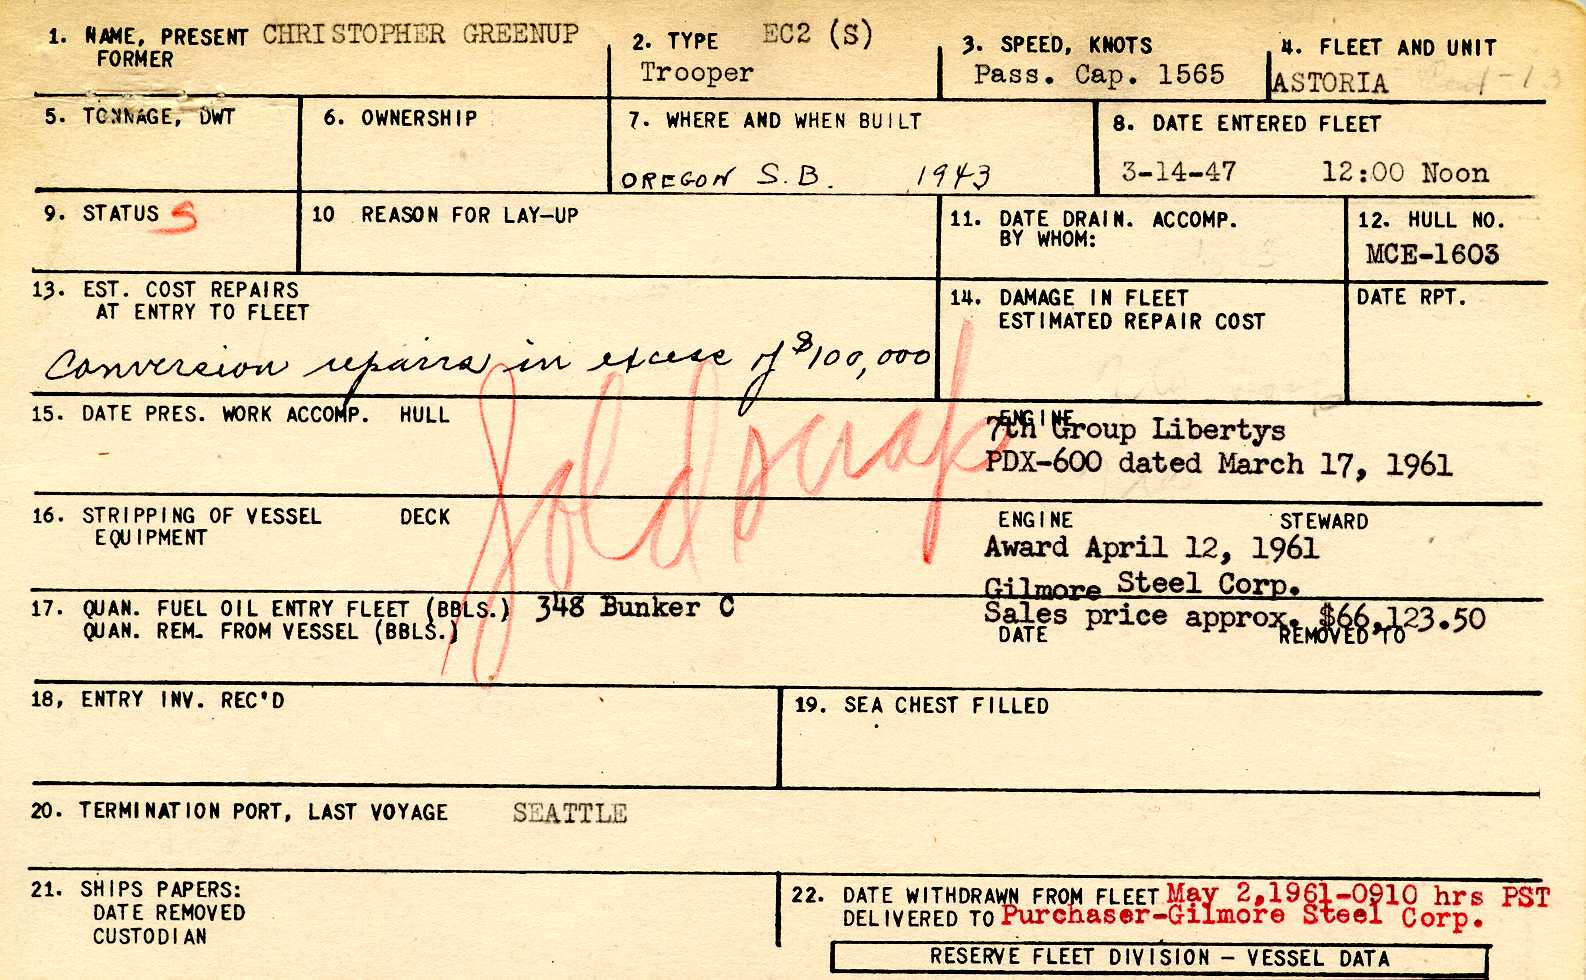 1. NAME, PRESENT CHRISTOPHER GREENUP
FORMER
2. TYPE EC2 (S)
Trooper
3. SPEED, KNOTS
Pass. Cap. 1565
4. FLEET AND UNIT
ASTORIA
5. TONNAGE, DWT
6. OWNERSHIP
7. WHERE AND WHEN BUILT
OREGON S.B. 1943
8. DATE ENTERED FLEET
3-14-47 12:00 Noon
9. STATUS S
10 REASON FOR LAY-UP
11. DATE DRAIN. ACCOMP.
BY WHOM:
12. HULL NO.
MCE-1603
13. EST. COST REPAIRS
AT ENTRY TO FLEET
Conversion repairs in excess of $100,000
14. DAMAGE IN FLEET
ESTIMATED REPAIR COST
DATE RPT.
15. DATE PRES. WORK ACCOMP. HULL
ENGINE
7th Group Libertys
PDX-600 dated March 17, 1961
Sold scrap
16. STRIPPING OF VESSEL DECK
EQUIPMENT
ENGINE STEWARD
Award April 12, 1961
Gilmore Steel Corp.
17. QUAN. FUEL OIL ENTRY FLEET (BBLS.) 348 Bunker C
Sales price approx. $66,123.50
QUAN. REM. FROM VESSEL (BBLS.) DATE REMOVED TO
18, ENTRY INV. REC'D
19. SEA CHEST FILLED
20. TERMINATION PORT, LAST VOYAGE SEATTLE
21. SHIPS PAPERS:
DATE REMOVED
CUSTODIAN
22. DATE WITHDRAWN FROM FLEET May 2,1961-0910 hrs PST
DELIVERED TO Purchaser-Gilmore Steel Corp.
RESERVE FLEET DIVISION - VESSEL DATA